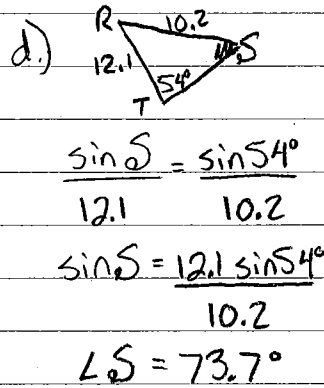 d.)
R 10.2 S
12.1
54°
T
sin S = sin 54°
12.1 10.2
sin S = 12.1 sin 54°
10.2
∠S = 73.7°